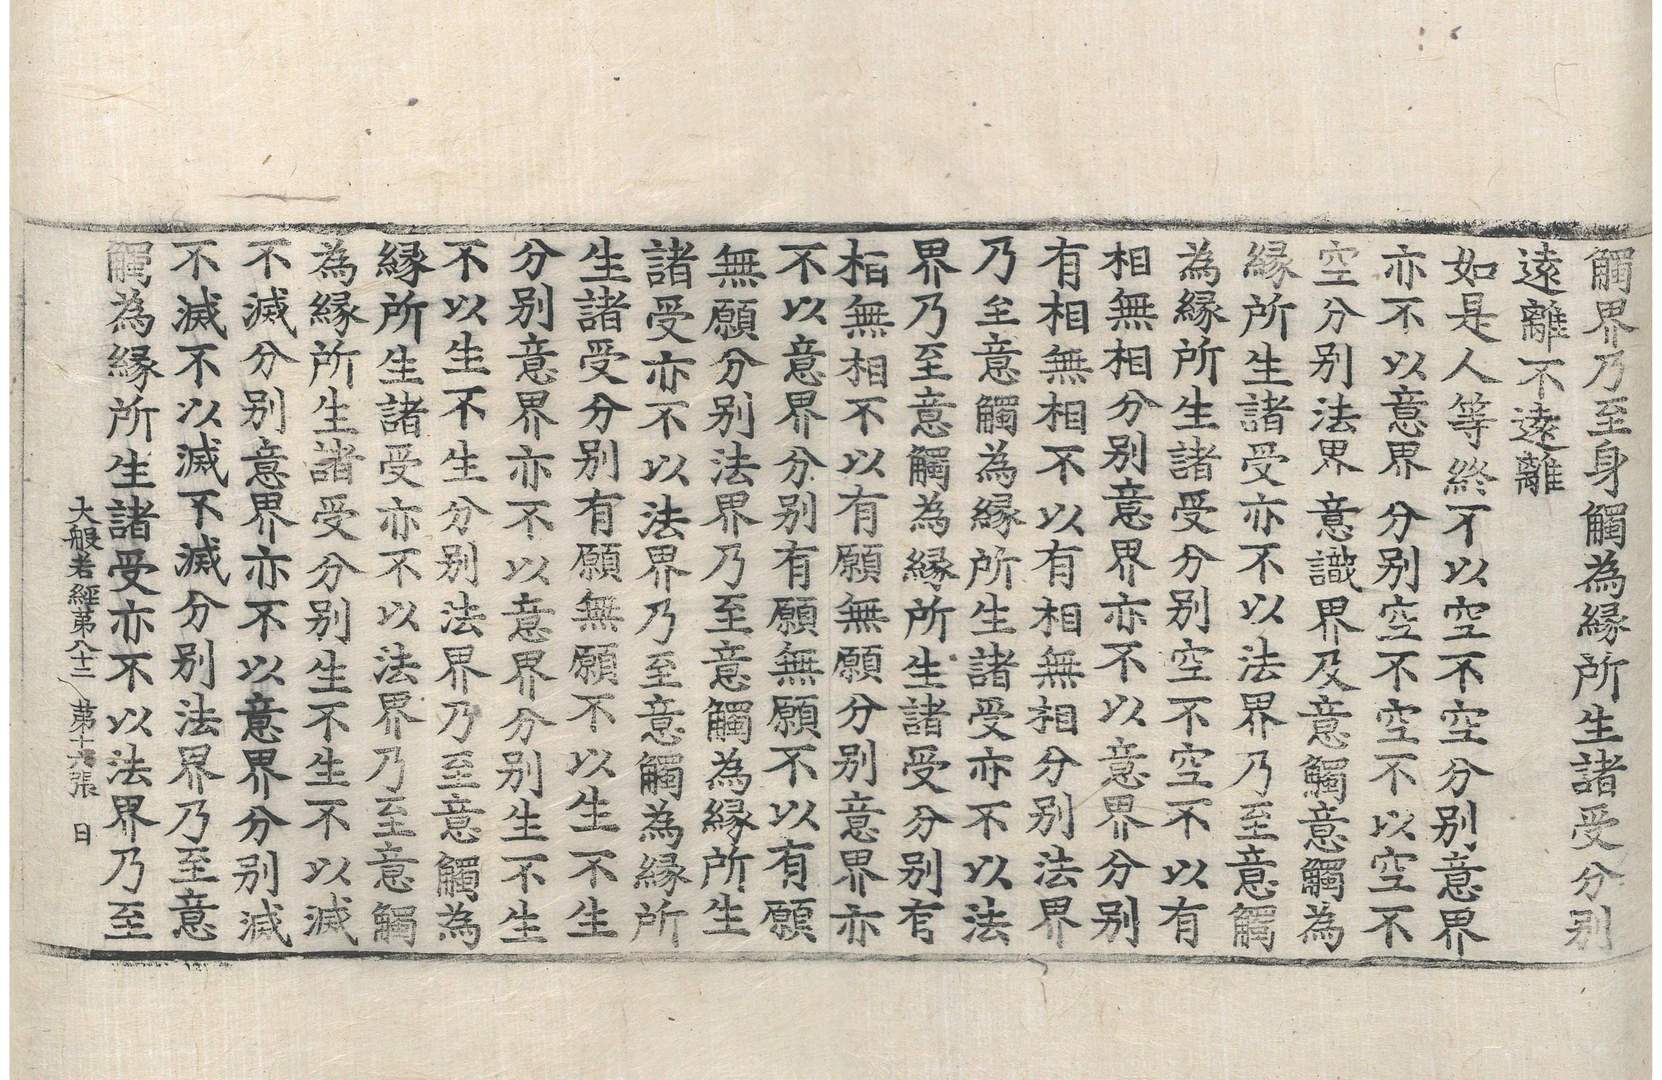 觸界乃至身觸為縁所生諸受分别
逺離不逺離
如是人等終不以空不空分别意界
亦不以意界分别空不空不以空不
空分别法界意識界及意觸意觸為
縁所生諸受亦不以法界乃至意觸
為縁所生諸受分别空不空不以有
相無相分别意界亦不以意界分别
有相無相不以有相無相分别法界
乃至意觸為縁所生諸受亦不以法
界乃至意觸為縁所生諸受分别有
相無相不以有願無願分别意界亦
不以意界分别有願無願不以有願
無願分别法界乃至意觸為縁所生
諸受亦不以法界乃至意觸為縁所
生諸受分别有願無願不以生不生
分别意界亦不以意界分别生不生
不以生不生分别法界乃至意觸為
縁所生諸受亦不以法界乃至意觸
為縁所生諸受分别生不生不以滅
不滅分别意界亦不以意界分别滅
不滅不以滅不滅分别法界乃至意
觸為縁所生諸受亦不以法界乃至
大般若經第八十二 第十六張 日